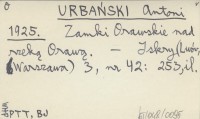 O URBAŃSKI Antoni
1925. Zamki Orawskie nad
rzeką Orawą. - Iskry (Lwów,
Warszawa) 3, nr 42: 253, il.
PTT, BJ